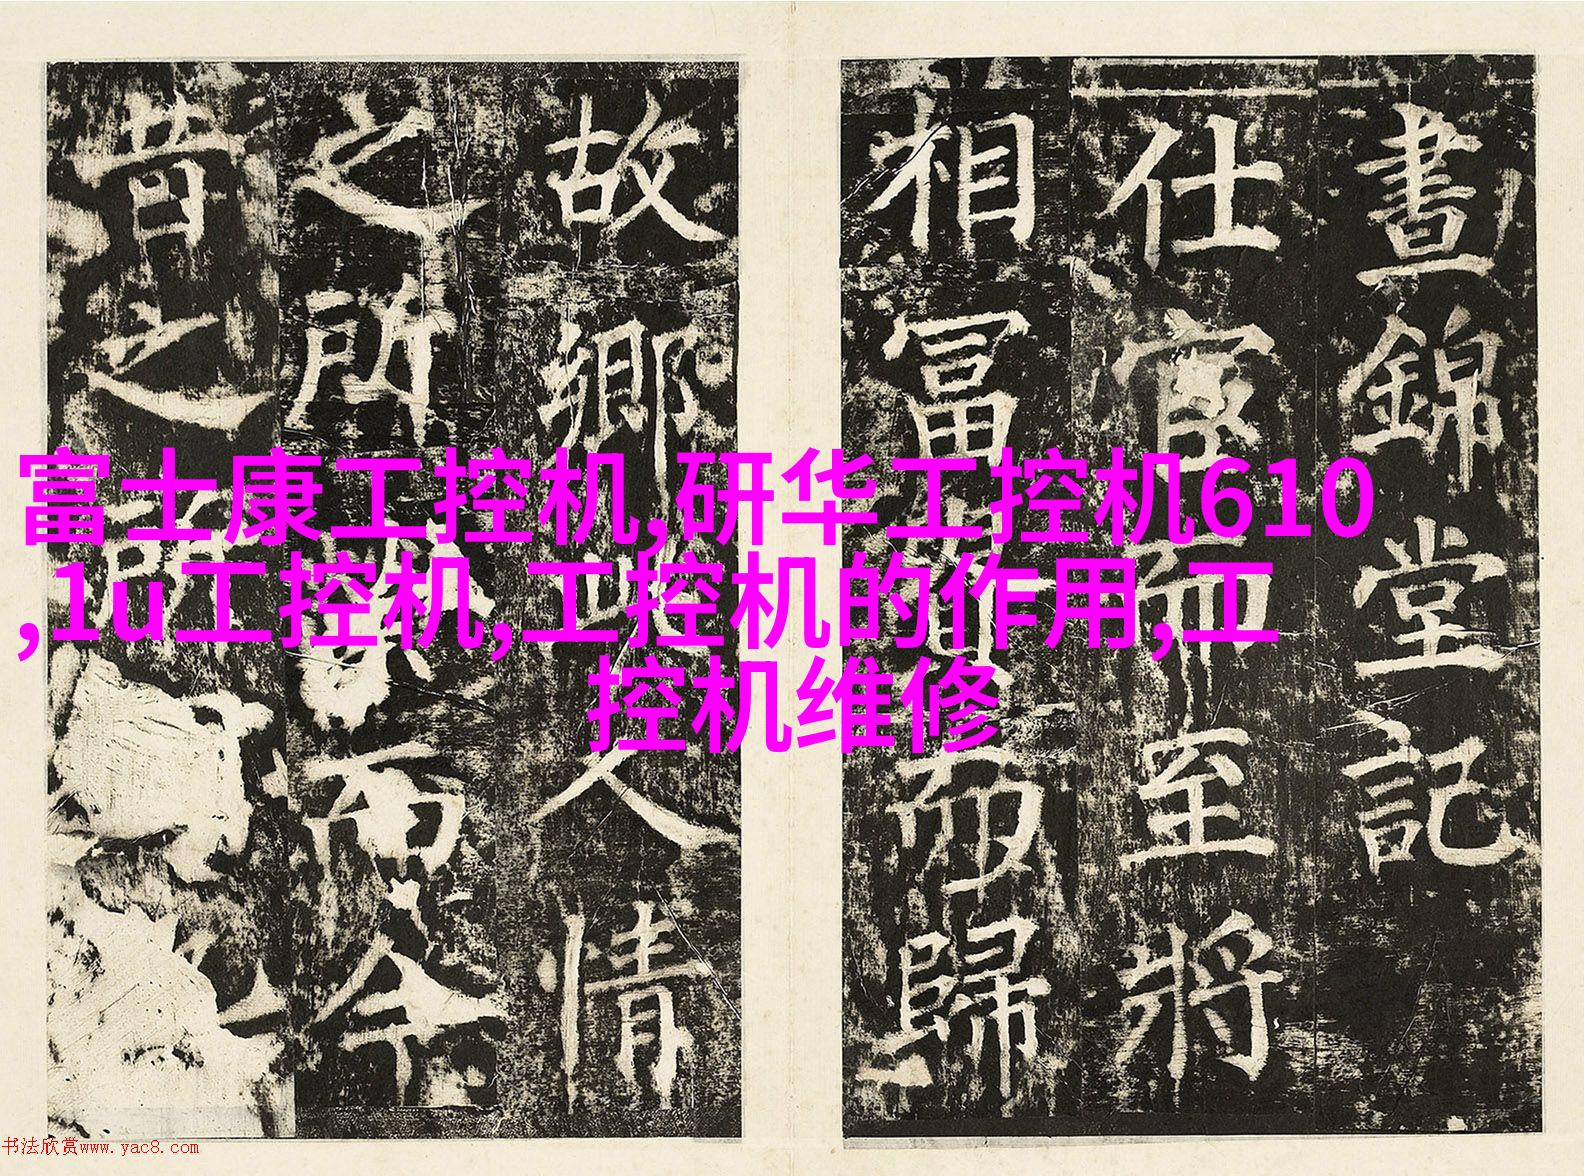 晝錦堂記
仕宦而至將
相冨貴而歸
故鄉此人情
之所榮而今
昔之所
富士康工控机,研华工控机610
,1u工控机,工控机的作用,工
控机维修
书法欣赏www.yac8.com